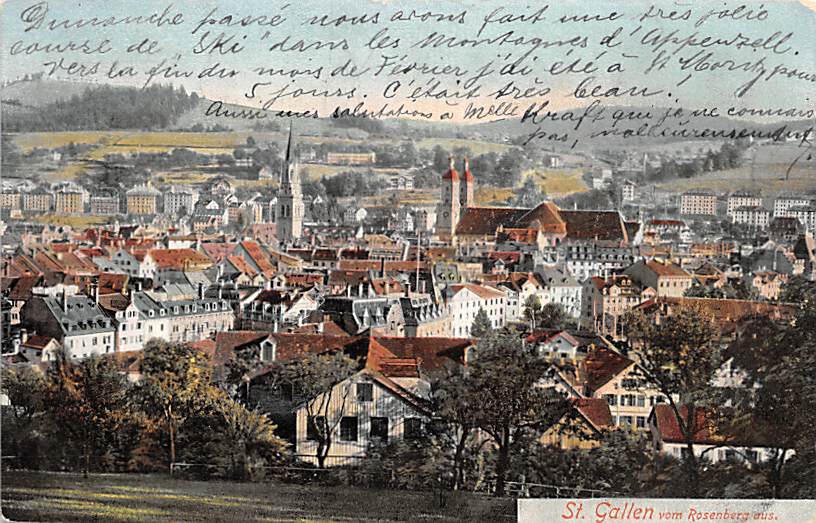 Dimanche passé nous avons fait une très jolie
course de "Ski" dans les Montagnes d'Appenzell.
Vers la fin du mois de Février j'ai été à St Moritz pour
5 jours. C'était très beau.
Aussi mes salutations à Melle Kraft que je ne connais
pas, malheureusement
St. Gallen vom Rosenberg aus.